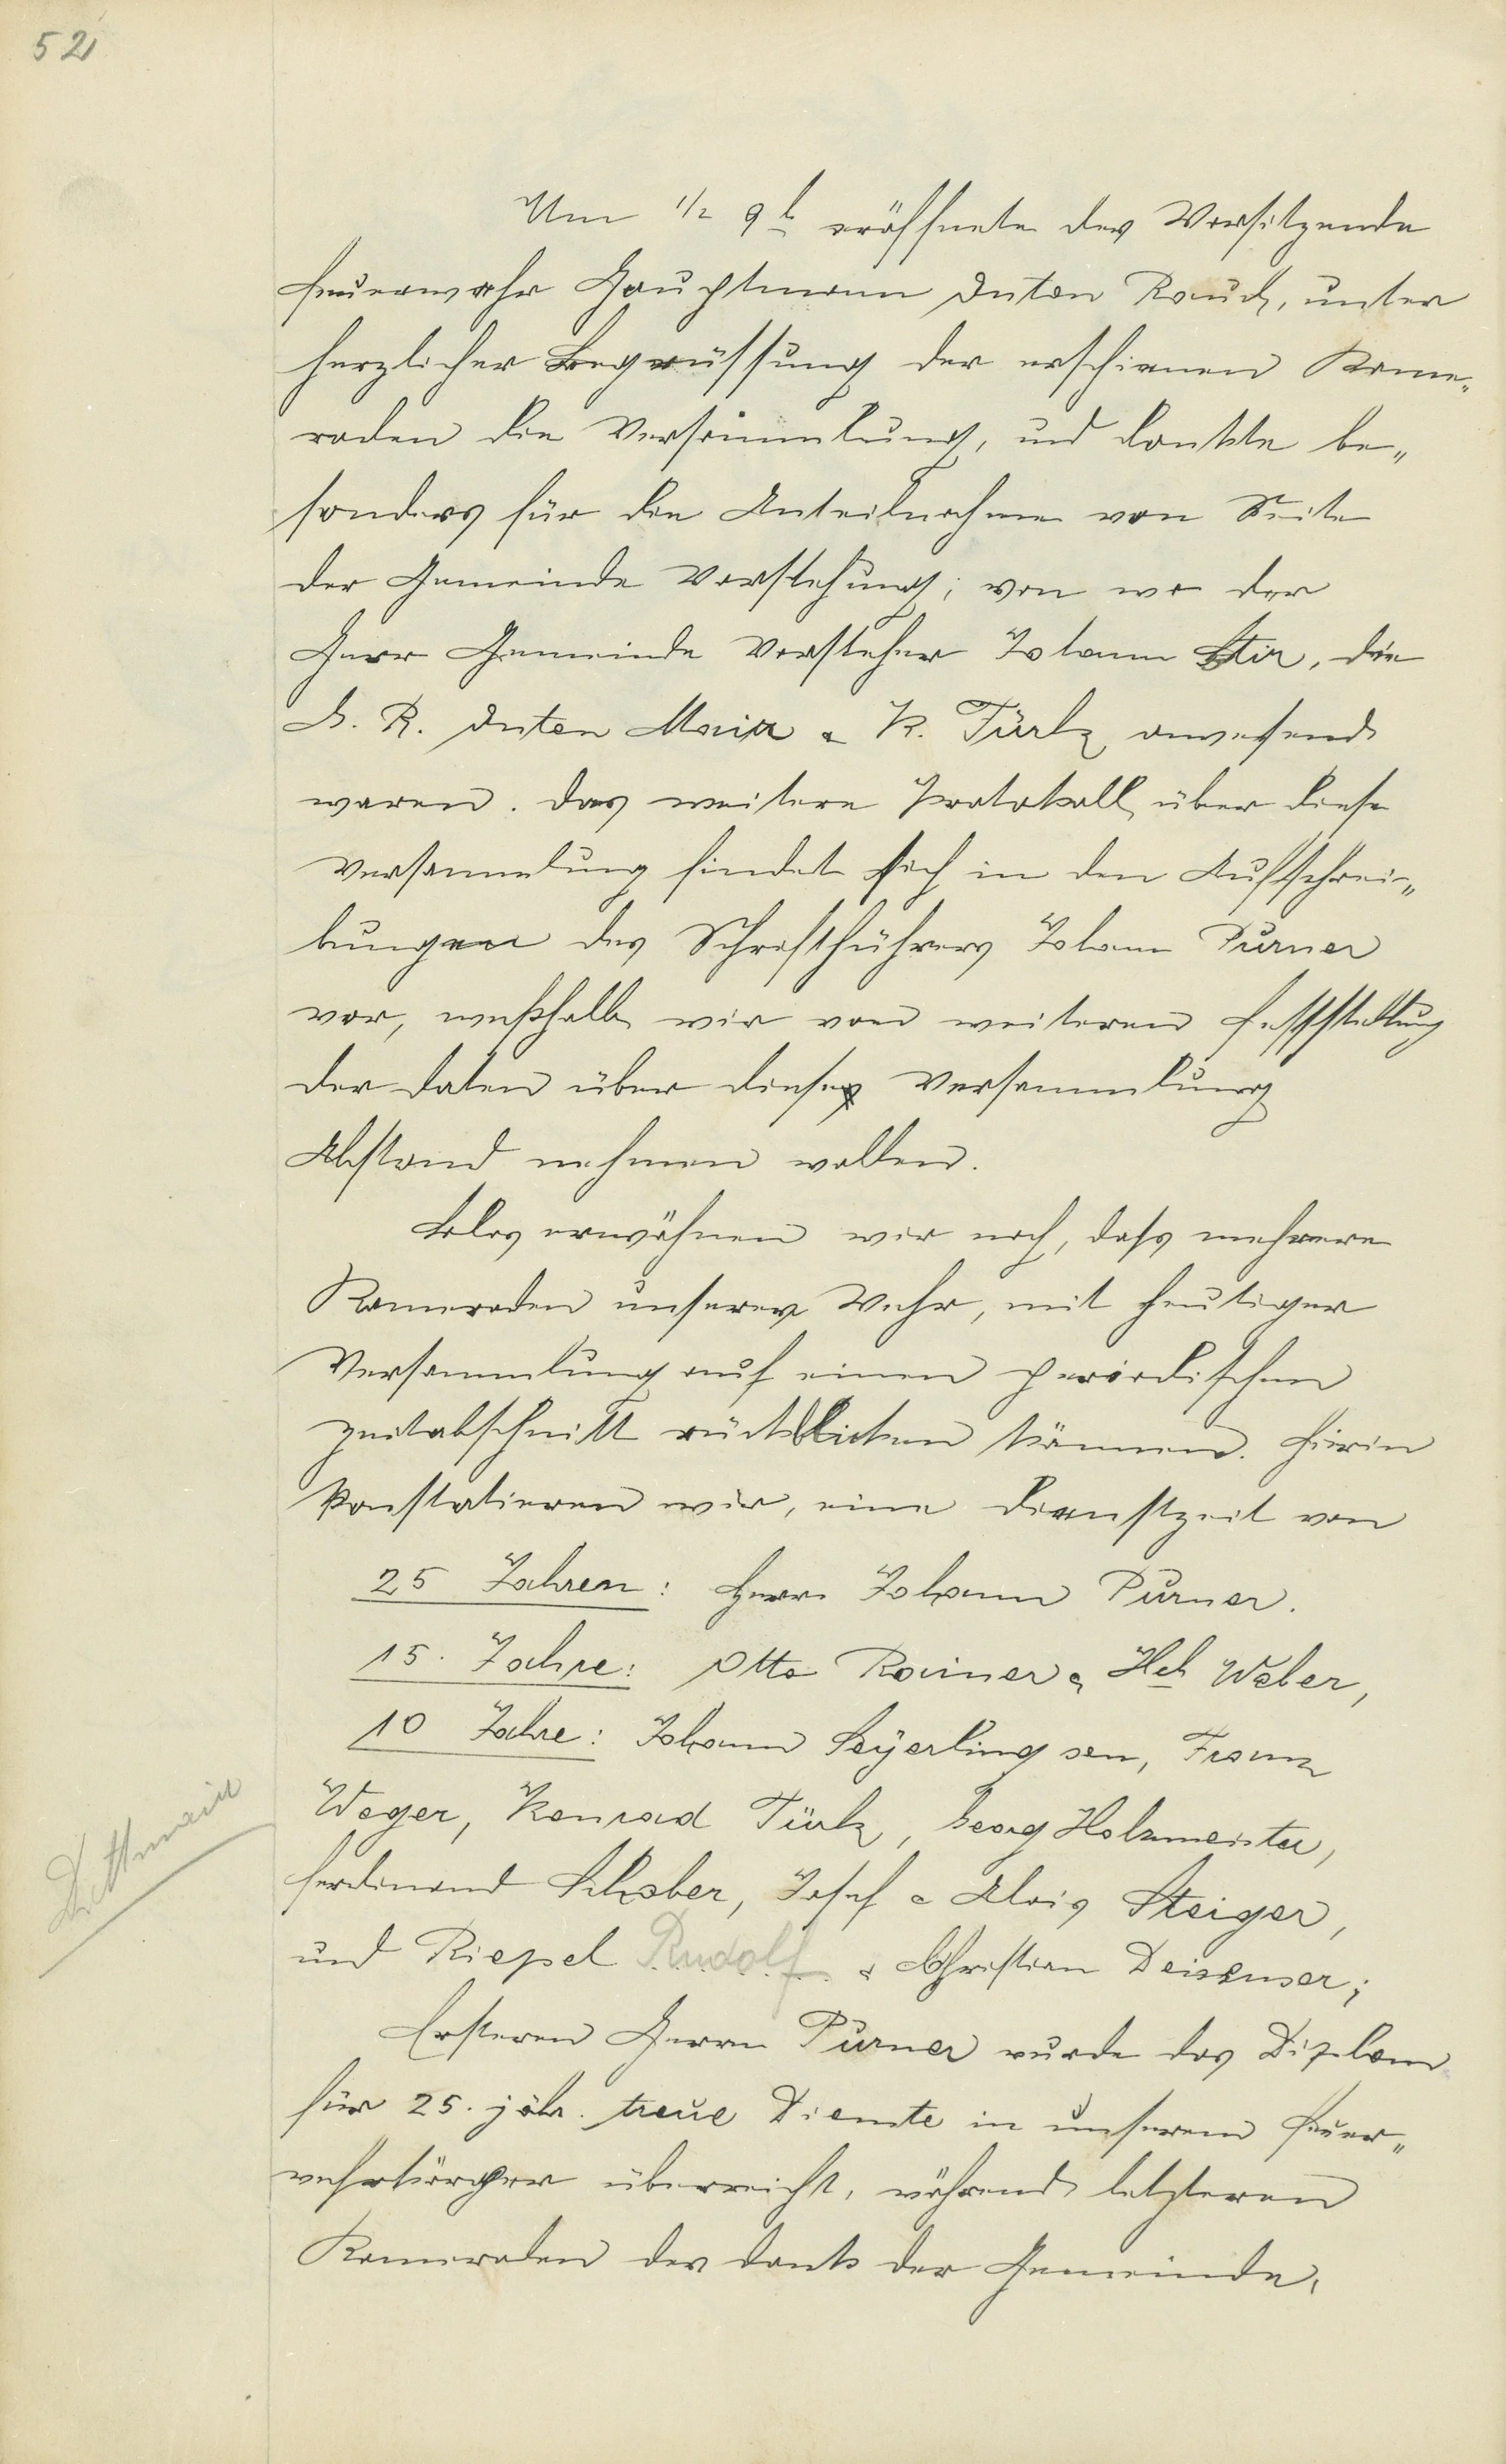 52
Um 1/2 9 h eröffnete der Vorsitzende
Feuerwehr Hauptmann Anton Rauch, unter
herzlicher Begrüssung der erschienen Kame„
raden die Versammlung, und dankte be„
sonders für die Anteilnahme von Seite
der Gemeinde Vorstehung; von wo der
Herr Gemeinde Vorsteher Johann Stir, die
G. R. Anton Mair & K. Türk anwesend
waren. Das weitere Protokoll über diese
Versammlung findet sich in den Aufschrei„
bungen des Schriftführers Johann Purner
vor, weßhalb wir von weiteren Feststellung
der Daten über diese Versammlung
Abstand nehmen wollen.
Blos erwähnen wir noch, dass mehrere
Kameraden unserer Wehr, mit heutiger
Versammlung auf einen periodischen
Zeitabschnitt rückblicken können. Hierin
konstatieren wir, eine Dienstzeit von
25 Jahren: Herr Johann Purner.
15. Jahre: Otto Rainer & Hch Weber,
10 Jahre: Johann Seÿerling sen, Franz
Weger, Konrad Türk, Georg Holzmeister,
Ferdinand Schober, Josef & Alois Steiger,
und Riepel Rudolf & Christian Deisenser;
Ersteren Herrn Purner wurde das Diplom
für 25. jähr. treue Dienste in unserem Feuer„
wehrkörper überreicht, während letzteren
Kameraden der Dank der Gemeinde,